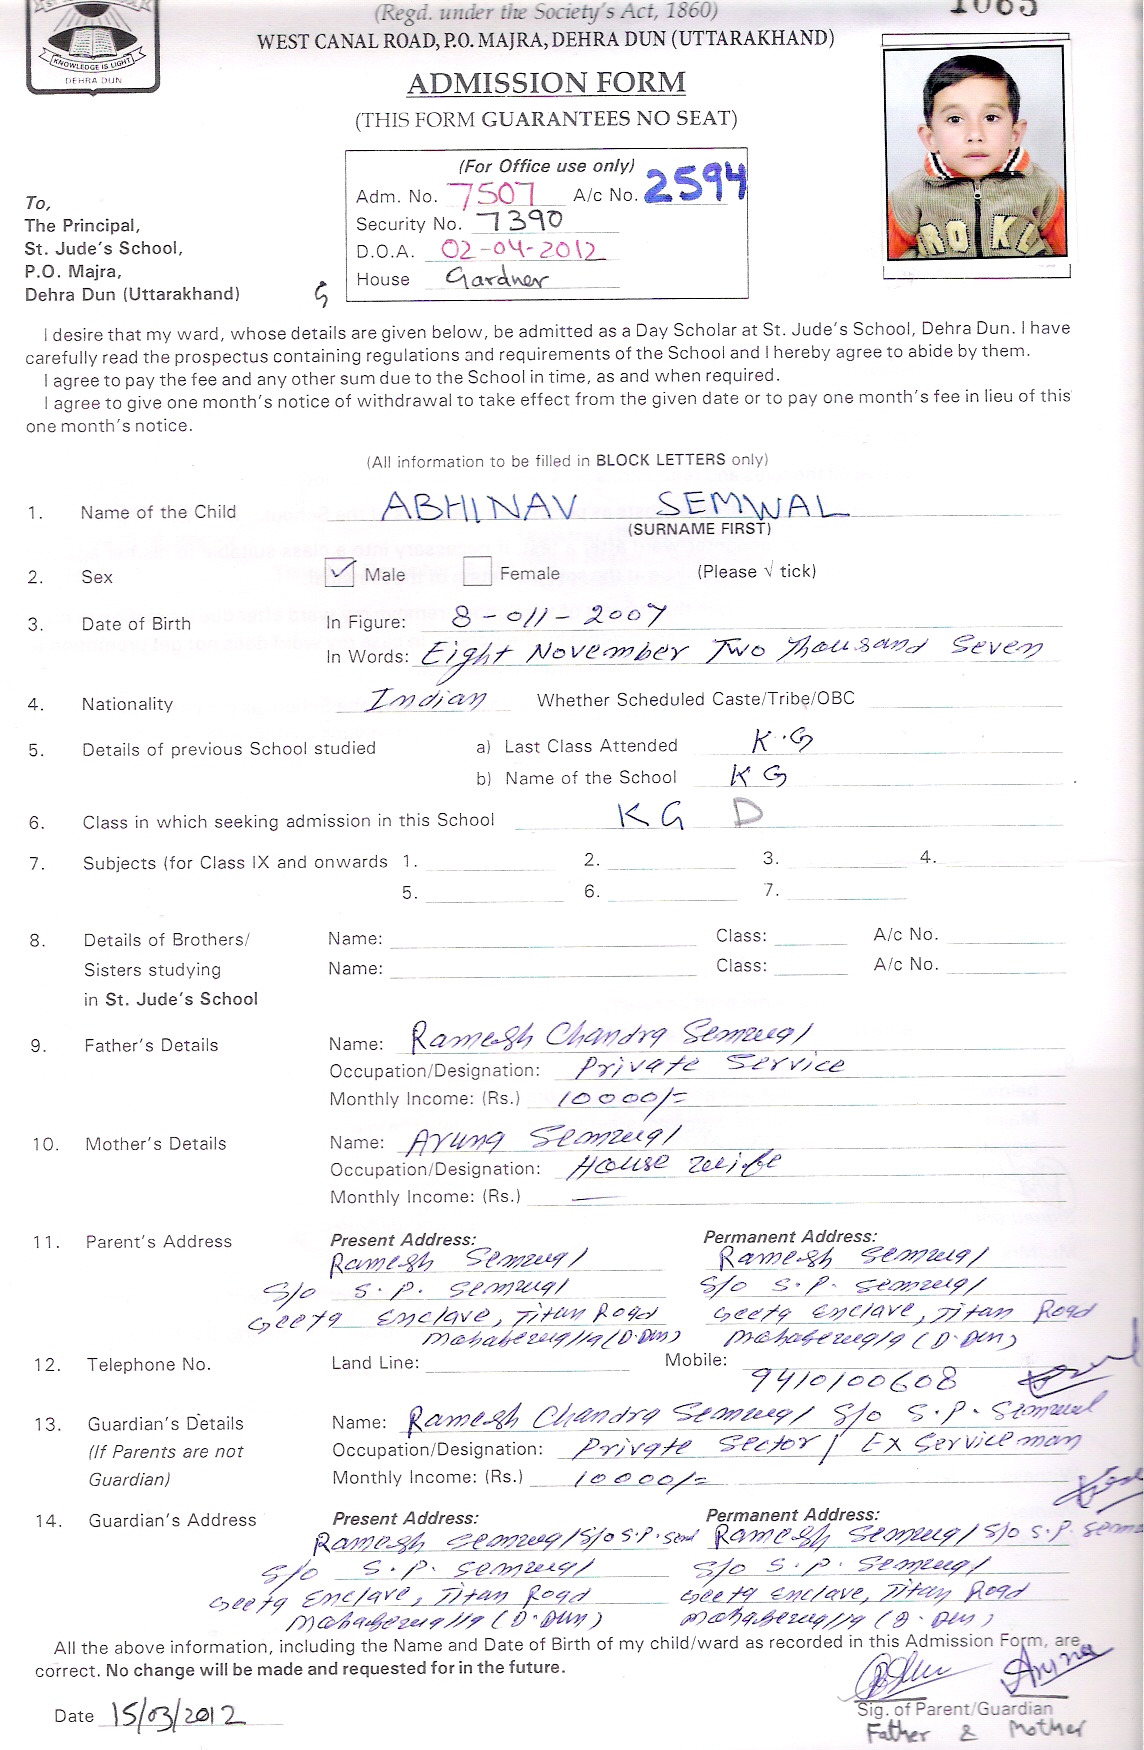 (Regd. under the Society's Act, 1860)
1085
WEST CANAL ROAD, P.O. MAJRA, DEHRA DUN (UTTARAKHAND)
KNOWLEDGE IS LIGHT
DEHRA DUN
ADMISSION FORM
(THIS FORM GUARANTEES NO SEAT)
(For Office use only)
Adm. No. 7507 A/c No. 2594
Security No. 7390
D.O.A. 02-04-2012
House Gardner
To,
The Principal,
St. Jude's School,
P.O. Majra,
Dehra Dun (Uttarakhand)
G
ROKL
I desire that my ward, whose details are given below, be admitted as a Day Scholar at St. Jude's School, Dehra Dun. I have
carefully read the prospectus containing regulations and requirements of the School and I hereby agree to abide by them.
I agree to pay the fee and any other sum due to the School in time, as and when required.
I agree to give one month's notice of withdrawal to take effect from the given date or to pay one month's fee in lieu of this
one month's notice.
(All information to be filled in BLOCK LETTERS only)
1. Name of the Child ABHINAV SEMWAL
(SURNAME FIRST)
2. Sex Male Female (Please √ tick)
3. Date of Birth In Figure: 8-011-2007
In Words: Eight November Two Thousand Seven
4. Nationality Indian Whether Scheduled Caste/Tribe/OBC
5. Details of previous School studied a) Last Class Attended K.G
b) Name of the School KG
6. Class in which seeking admission in this School KG D
7. Subjects (for Class IX and onwards 1. 2. 3. 4.
5. 6. 7.
8. Details of Brothers/ Name: Class: A/c No.
Sisters studying Name: Class: A/c No.
in St. Jude's School
9. Father's Details Name: Ramesh Chandra Semwal
Occupation/Designation: Private Service
Monthly Income: (Rs.) 10000/=
10. Mother's Details Name: Aruna Semwal
Occupation/Designation: House wife
Monthly Income: (Rs.) —
11. Parent's Address Present Address: Permanent Address:
Ramesh Semwal Ramesh Semwal
S/o S.P. Semwal S/o S.P. Semwal
Geeta Enclave, Titan Road Geeta Enclave, Titan Road
Mahabewalla (D.Dun) Mahabewalla (D.Dun)
12. Telephone No. Land Line: Mobile: 9410100608
13. Guardian's Details Name: Ramesh Chandra Semwal S/o S.P. Semwal
(If Parents are not Occupation/Designation: Private Sector / Ex Service man
Guardian) Monthly Income: (Rs.) 10000/=
14. Guardian's Address Present Address: Permanent Address:
Ramesh Semwal S/o S.P. Ramesh Semwal S/o S.P.
S/o S.P. Semwal S/o S.P. Semwal
Geeta Enclave, Titan Road Geeta Enclave, Titan Road
Mahabewalla (D.Dun) Mahabewalla (D.Dun)
All the above information, including the Name and Date of Birth of my child/ward as recorded in this Admission Form, are
correct. No change will be made and requested for in the future.
Aruna
Date 15/03/2012
Sig. of Parent/Guardian
Father & Mother